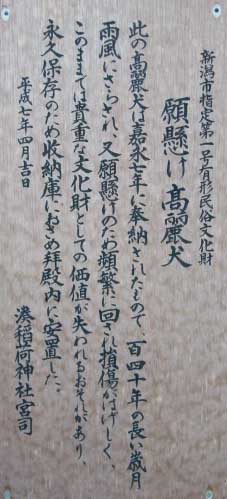 新潟市指定第一号有形民俗文化財
願懸け高麗犬
此の高麗犬は嘉永七年に奉納されたもので、百四十年の長い歳月
雨風にさらされ、又願懸けのため頻繁に回され損傷がはげしく、
このままでは貴重な文化財としての価値が失われるおそれがあり、
永久保存のため収納庫におさめ拝殿内に安置した。
平成七年四月吉日
湊稲荷神社宮司